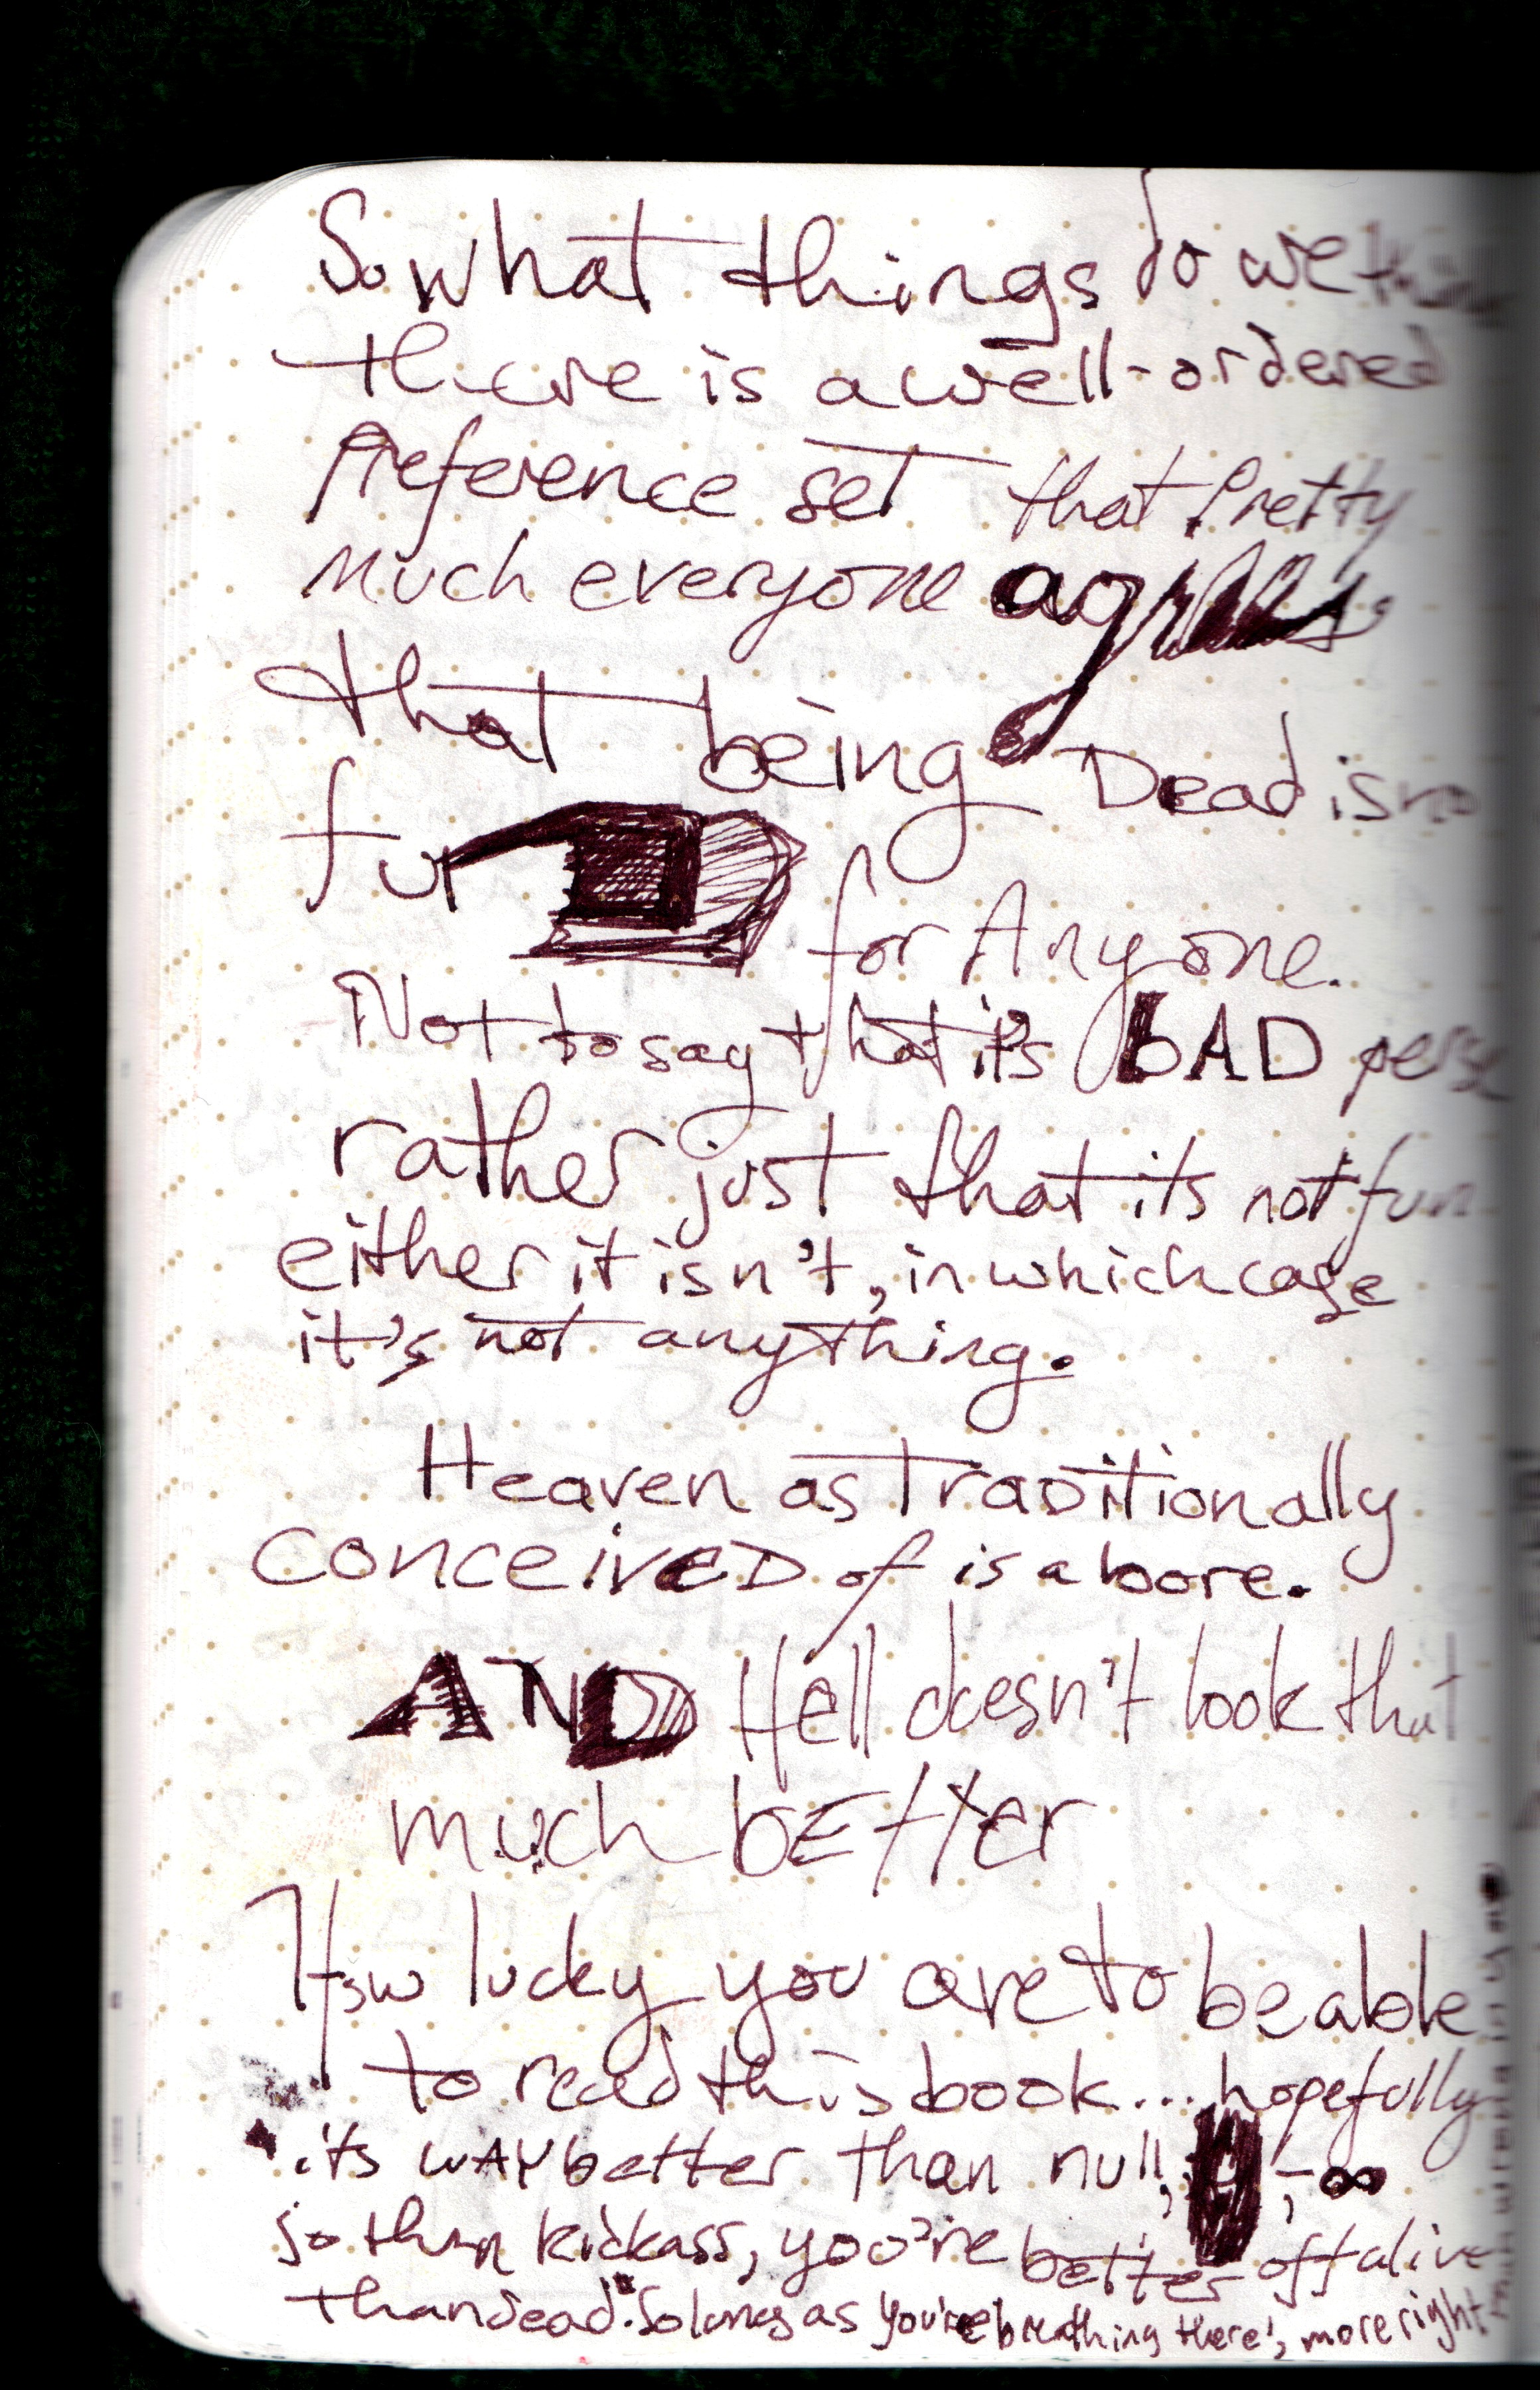 So what things do we think
there is a well-ordered
Preference set that Pretty
much everyone agrees
that being Dead is no
fun for Anyone.
Not to say that it's bAD per se
rather just that its not fun
either it isn't, in which case
it's not anything.
Heaven as TraDitionally
conceiveD of is a bore.
AND Hell doesn't look that
much bETTer
How lucky you are to be able
to read this book... hopefully
its WAY better than null, , -∞
so then kickass, you're better off alive
than dead. So long as you're breathing there's more right
than wrong in you